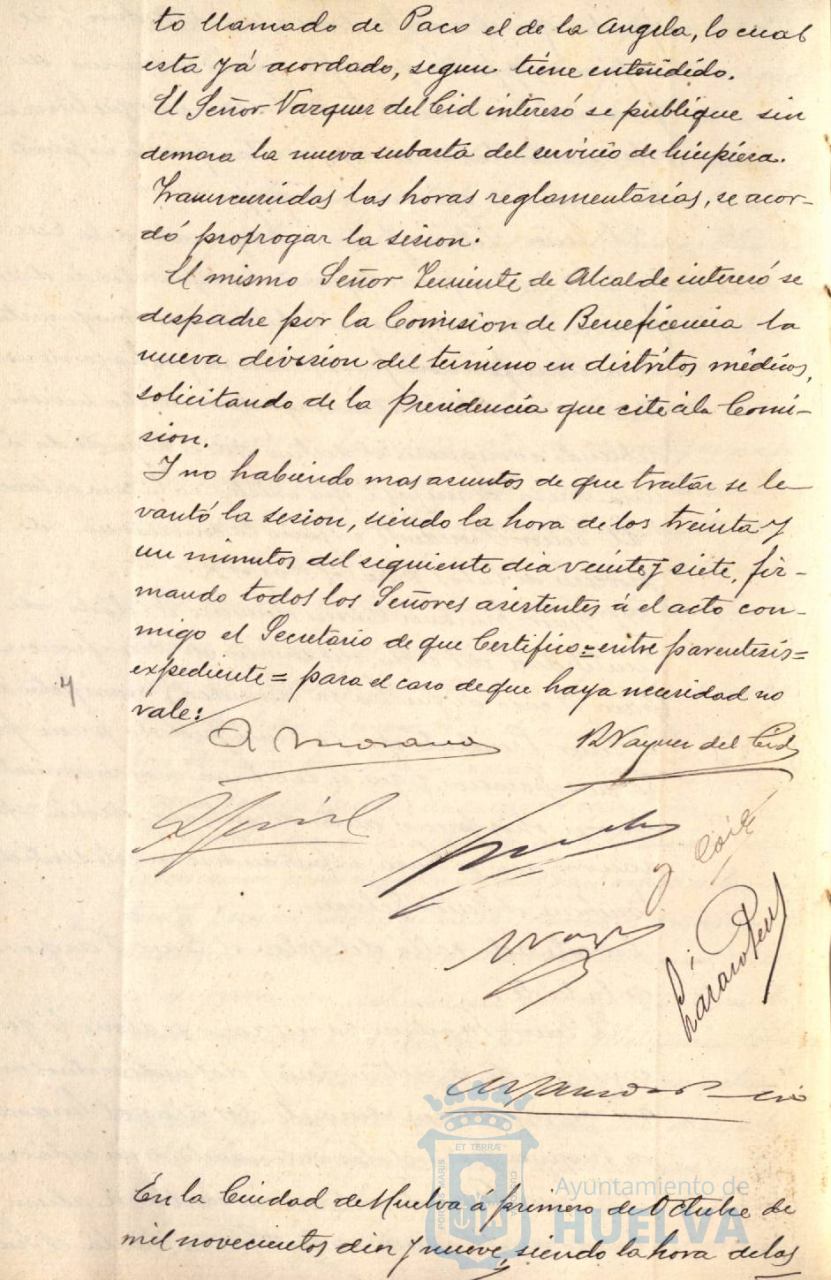 to llamado de Paco el de la Angela, lo cual
esta yá acordado, segun tiene entendido.
El Señor Vazquez del Cid interesó se publique sin
demora la nueva subasta del servicio de limpieza.
Transcurridas las horas reglamentarias, se acor-
dó prorrogar la sesion.
El mismo Señor Teniente de Alcalde interesó se
despache por la Comision de Beneficencia la
nueva division del termino en distritos médicos,
solicitando de la presidencia que cite á la Comi-
sion.
Y no habiendo mas asuntos de que tratar se le-
vantó la sesion, siendo la hora de los treinta y
un minutos del siguiente dia veinte y siete, fir-
mando todos los Señores asistentes á el acto con-
migo el Secretario de que Certifico = entre parentesis =
expediente = para el caso de que haya necesidad no
vale:
A Morano R Vazquez del Cid
Lázaro
ET TERRAE
Ayuntamiento de
HUELVA
En la Ciudad de Huelva á primero de Octubre de
mil novecientos diez y nueve, siendo la hora de las